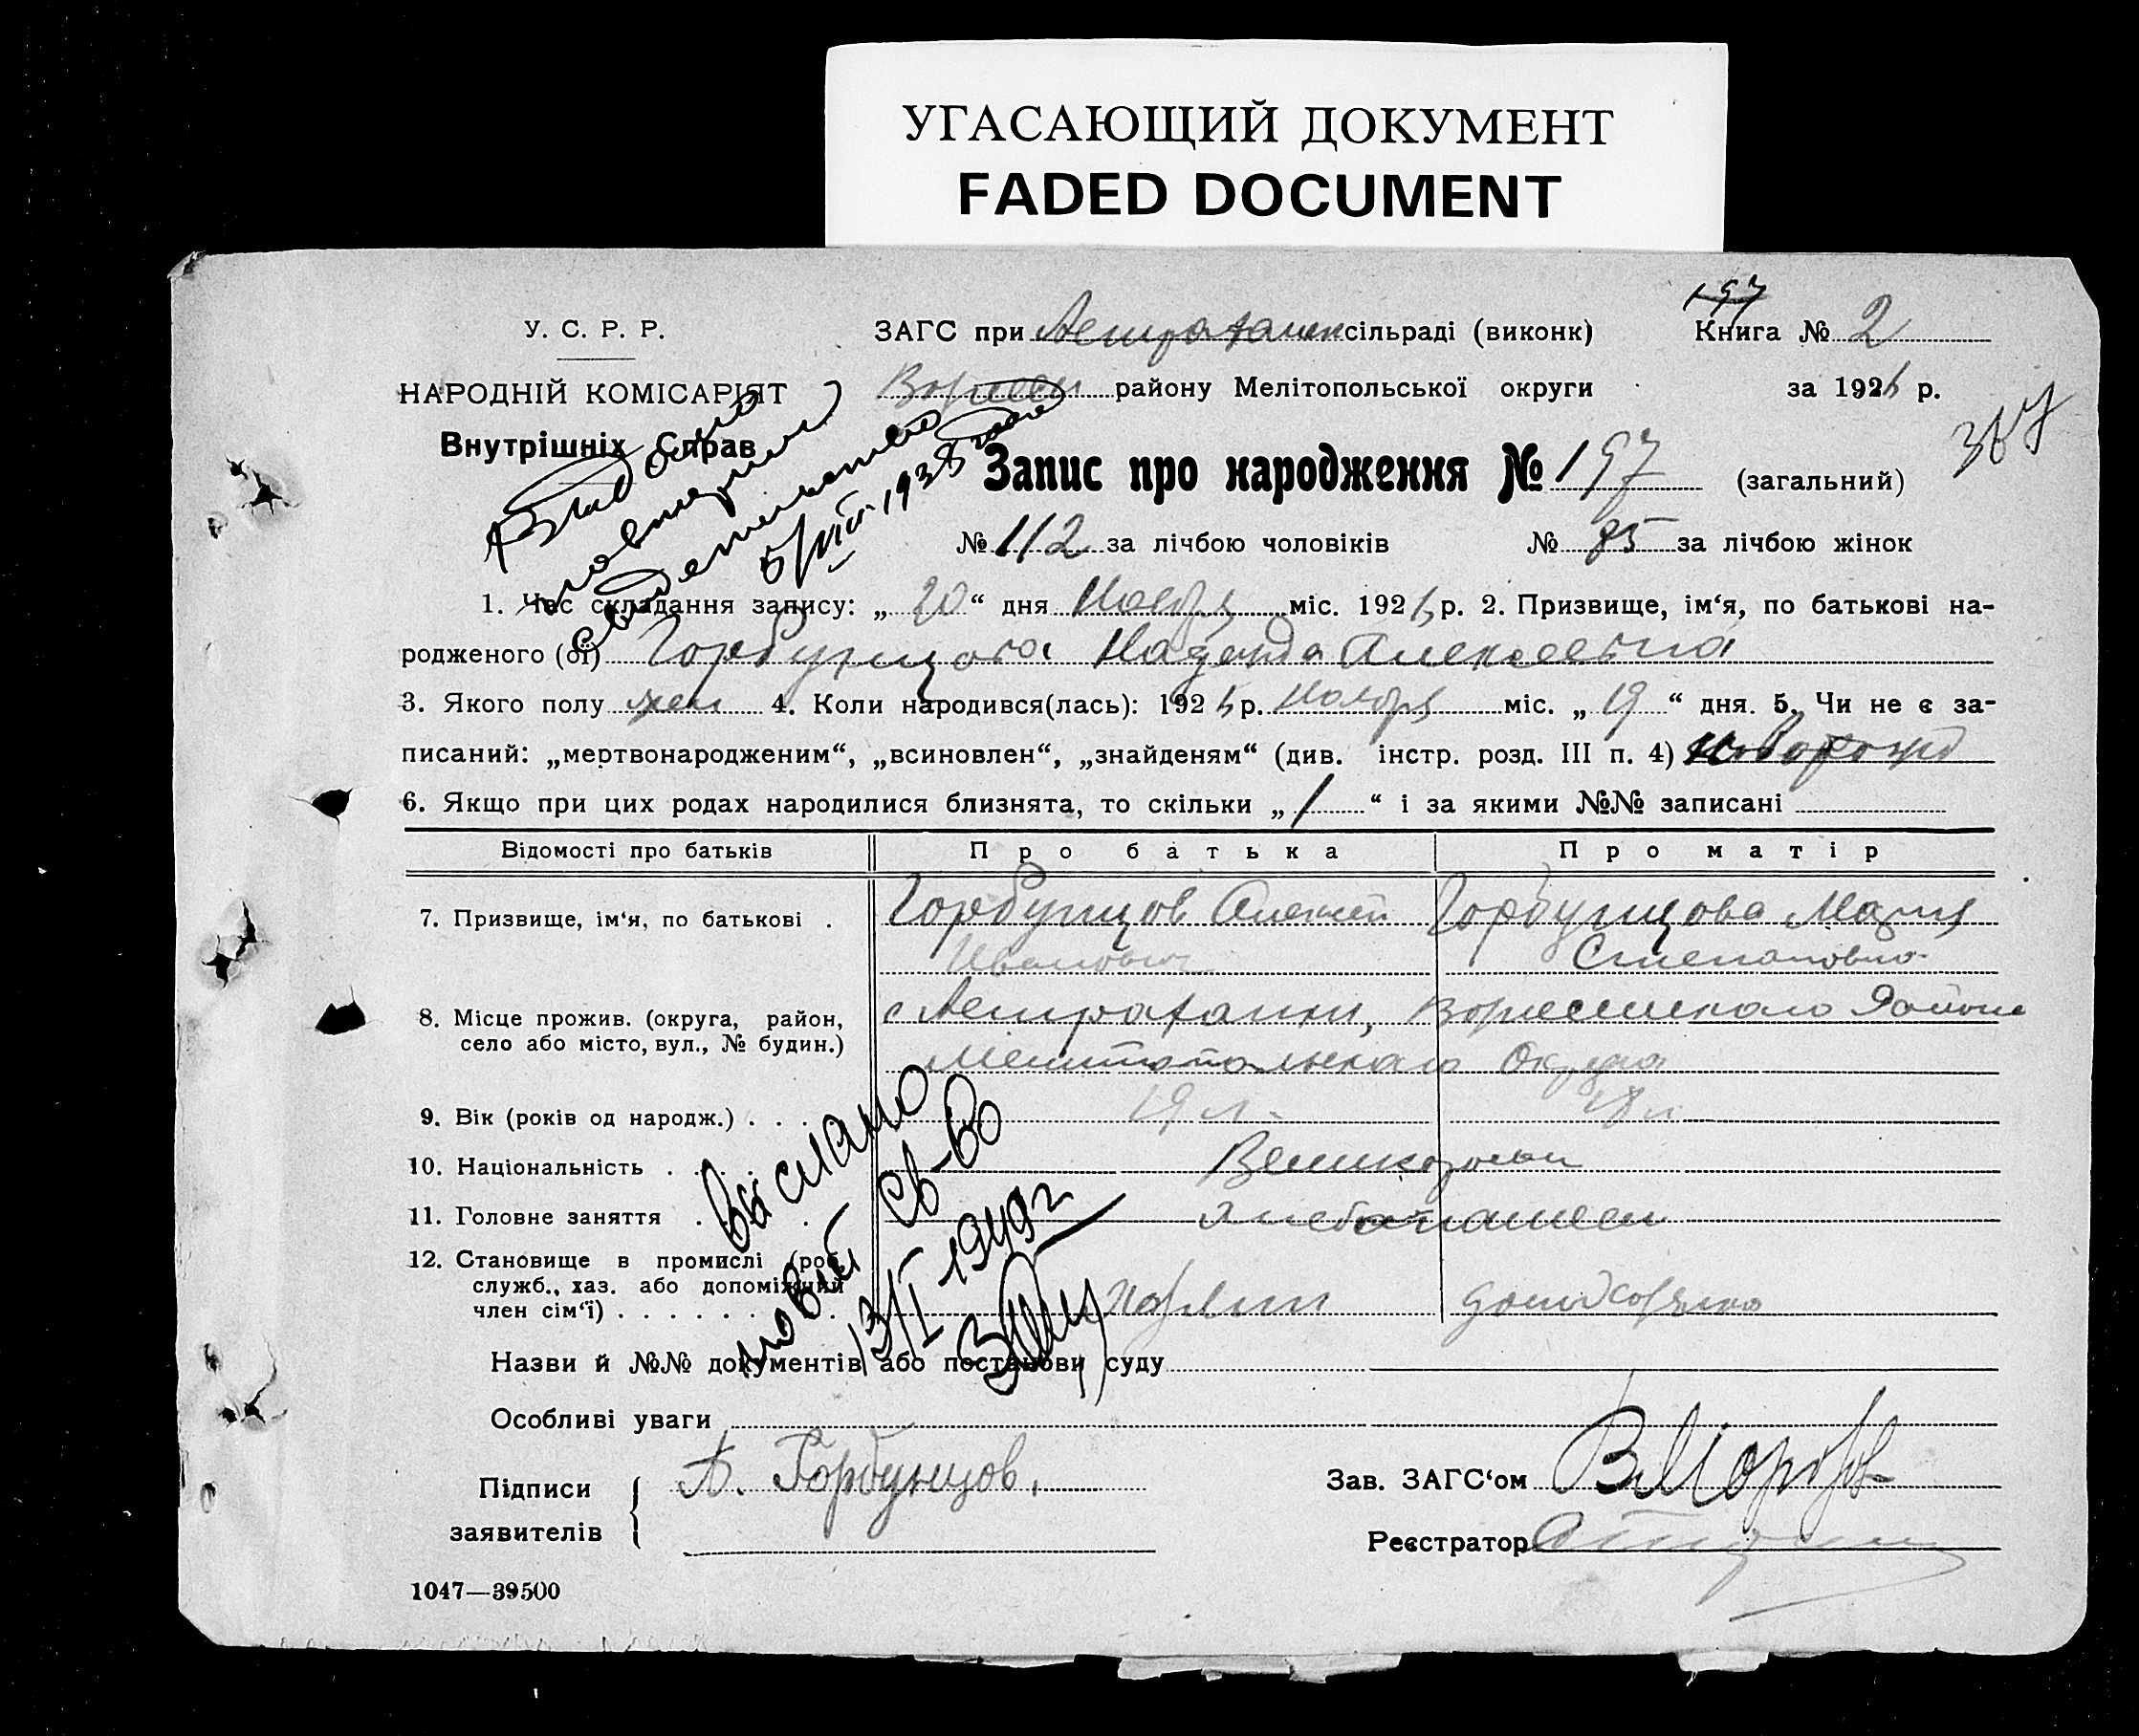 УГАСАЮЩИЙ ДОКУМЕНТ
FADED DOCUMENT
197
У. С. Р. Р.
ЗАГС при Астрахан сільраді (виконк)
Книга № 2
НАРОДНІЙ КОМІСАРІЯТ
району Мелітопольської округи
за 192 р.
Внутрішніх Справ
Запис про народження № 197 (загальний)
№ 112 за лічбою чоловіків
№ 85 за лічбою жінок
повторный
свидетельство
5/VIII-1938
1. Час складання запису: „ 20 “ дня Ноября міс. 192 р. 2. Призвище, ім‘я, по батькові на-
родженого (ої) Горбунцова Надежда Алексеевна
3. Якого полу жен 4. Коли народився(лась): 192 р. Ноября міс. „ 19 “ дня. 5. Чи не є за-
писаний: „мертвонародженим“, „всиновлен“, „знайденям“ (див. інстр. розд. III п. 4) новорожд
6. Якщо при цих родах народилися близнята, то скільки „ 1 “ і за якими №№ записані
Відомості про батьків
Про батька
Про матір
7. Призвище, ім‘я, по батькові .
Горбунцов Алексей
Горбунцова Мария
Иванович
Степановна
8. Місце прожив. (округа, район,
село або місто, вул., № будин.)
с Астраханки, Района
Мелитопольскаго Округа
9. Вік (років од народж.) . . .
19 л.
18 л.
10. Національність . . . .
Великороссы
11. Головне заняття . . .
хлебопашест
12. Становище в промислі (роб.
служб., хаз. або допоміжний
член сім‘ї) . . . . . . . .
хозяин
домохозяйка
Выслано
новый св-во
13/I-1949 г
Назви й №№ документів або постанови суду
Особливі уваги
Підписи
заявителів
А. Горбунцов.
Зав. ЗАГС‘ом
Реєстратор
1047—39500